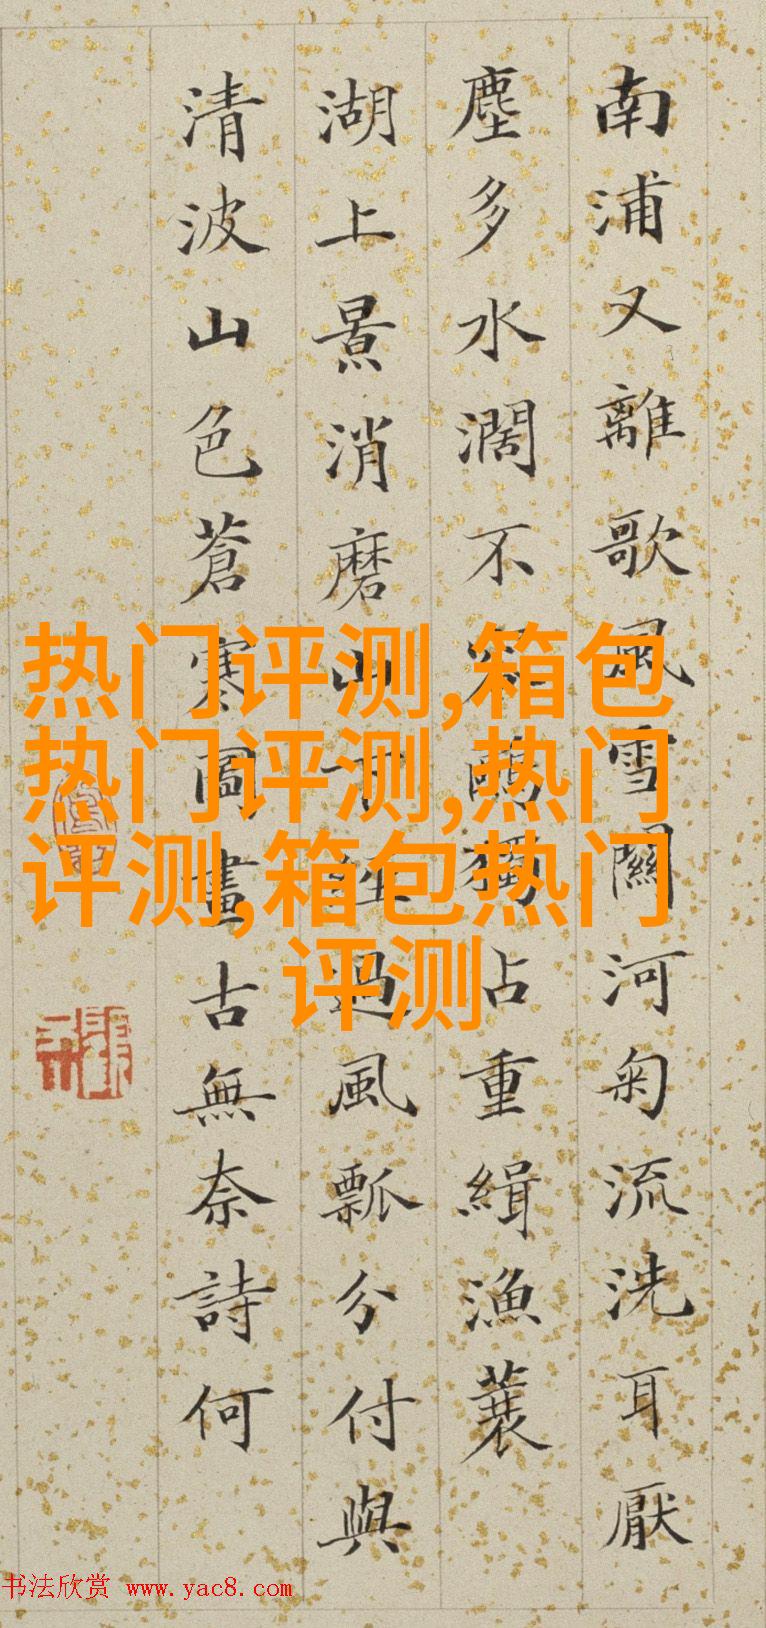 南浦又離歌風雪關河匊流洗耳厭
塵多水濶不鷗獨占重緝漁蓑
湖上景消磨山下經過風瓢分付與
清波山色蒼寒圖畫古無奈詩何
热门评测,箱包
热门评测,热门
评测,箱包热门
评测
书法欣赏 www.yac8.com